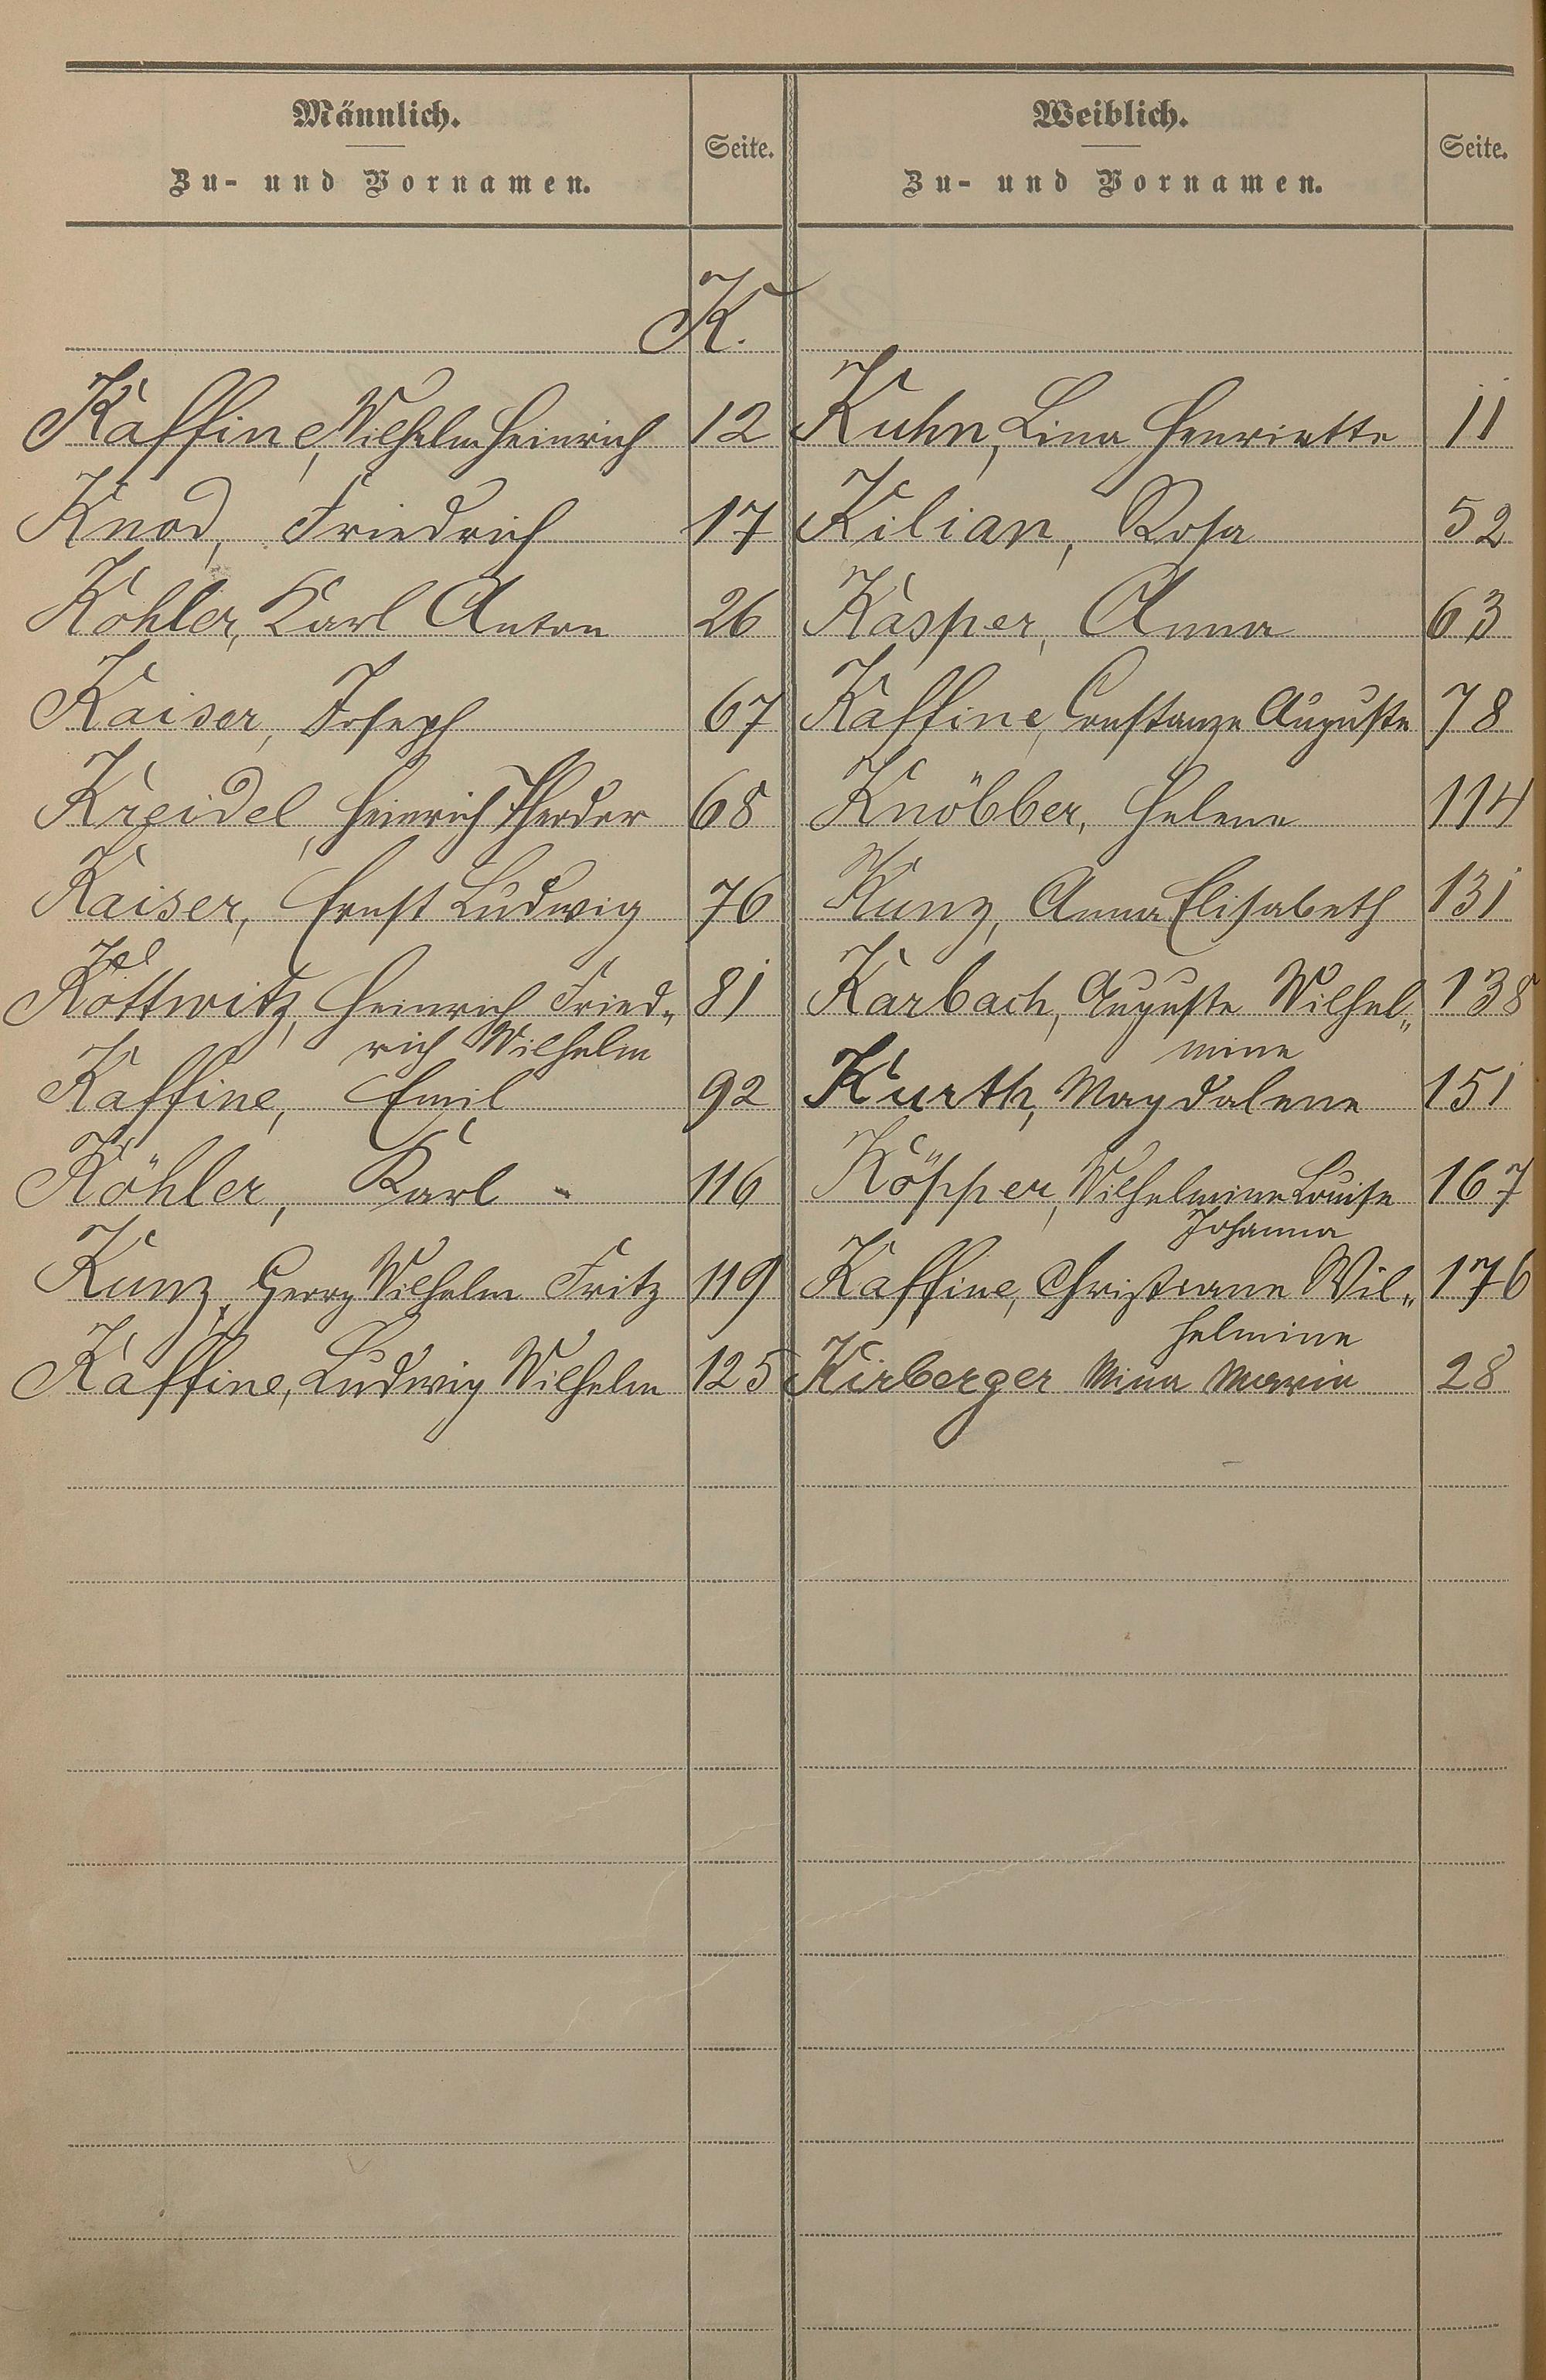 Männlich.
Zu- und Vornamen.
Seite.
Weiblich.
Zu- und Vornamen.
Seite.
K.
Kaffine, Wilhelm Heinrich 12
Knod, Friedrich 17
Kohler, Karl Anton 26
Kaiser, Joseph 67
Kreidel, Heinrich Theodor 68
Kaiser, Ernst Ludwig 76
Kottwitz, Heinrich Fried- 81
rich Wilhelm
Kaffine, Emil 92
Köhler, Karl 116
Kunz, Georg Wilhelm Fritz 119
Kaffine, Ludwig Wilhelm 125
Kuhn, Lina Henriette 11
Kilian, Rosa 52
Kasper, Anna 63
Kaffine, Constanze Auguste 78
Knöbber, Helene 114
Kunz, Anna Elisabeth 131
Karbach, Auguste Wilhel- 138
mine
Kurth, Magdalene 151
Köpper, Wilhelmine Louise 167
Johanna
Kaffine, Christiane Wil- 176
helmine
Kirberger Mina Maria 28